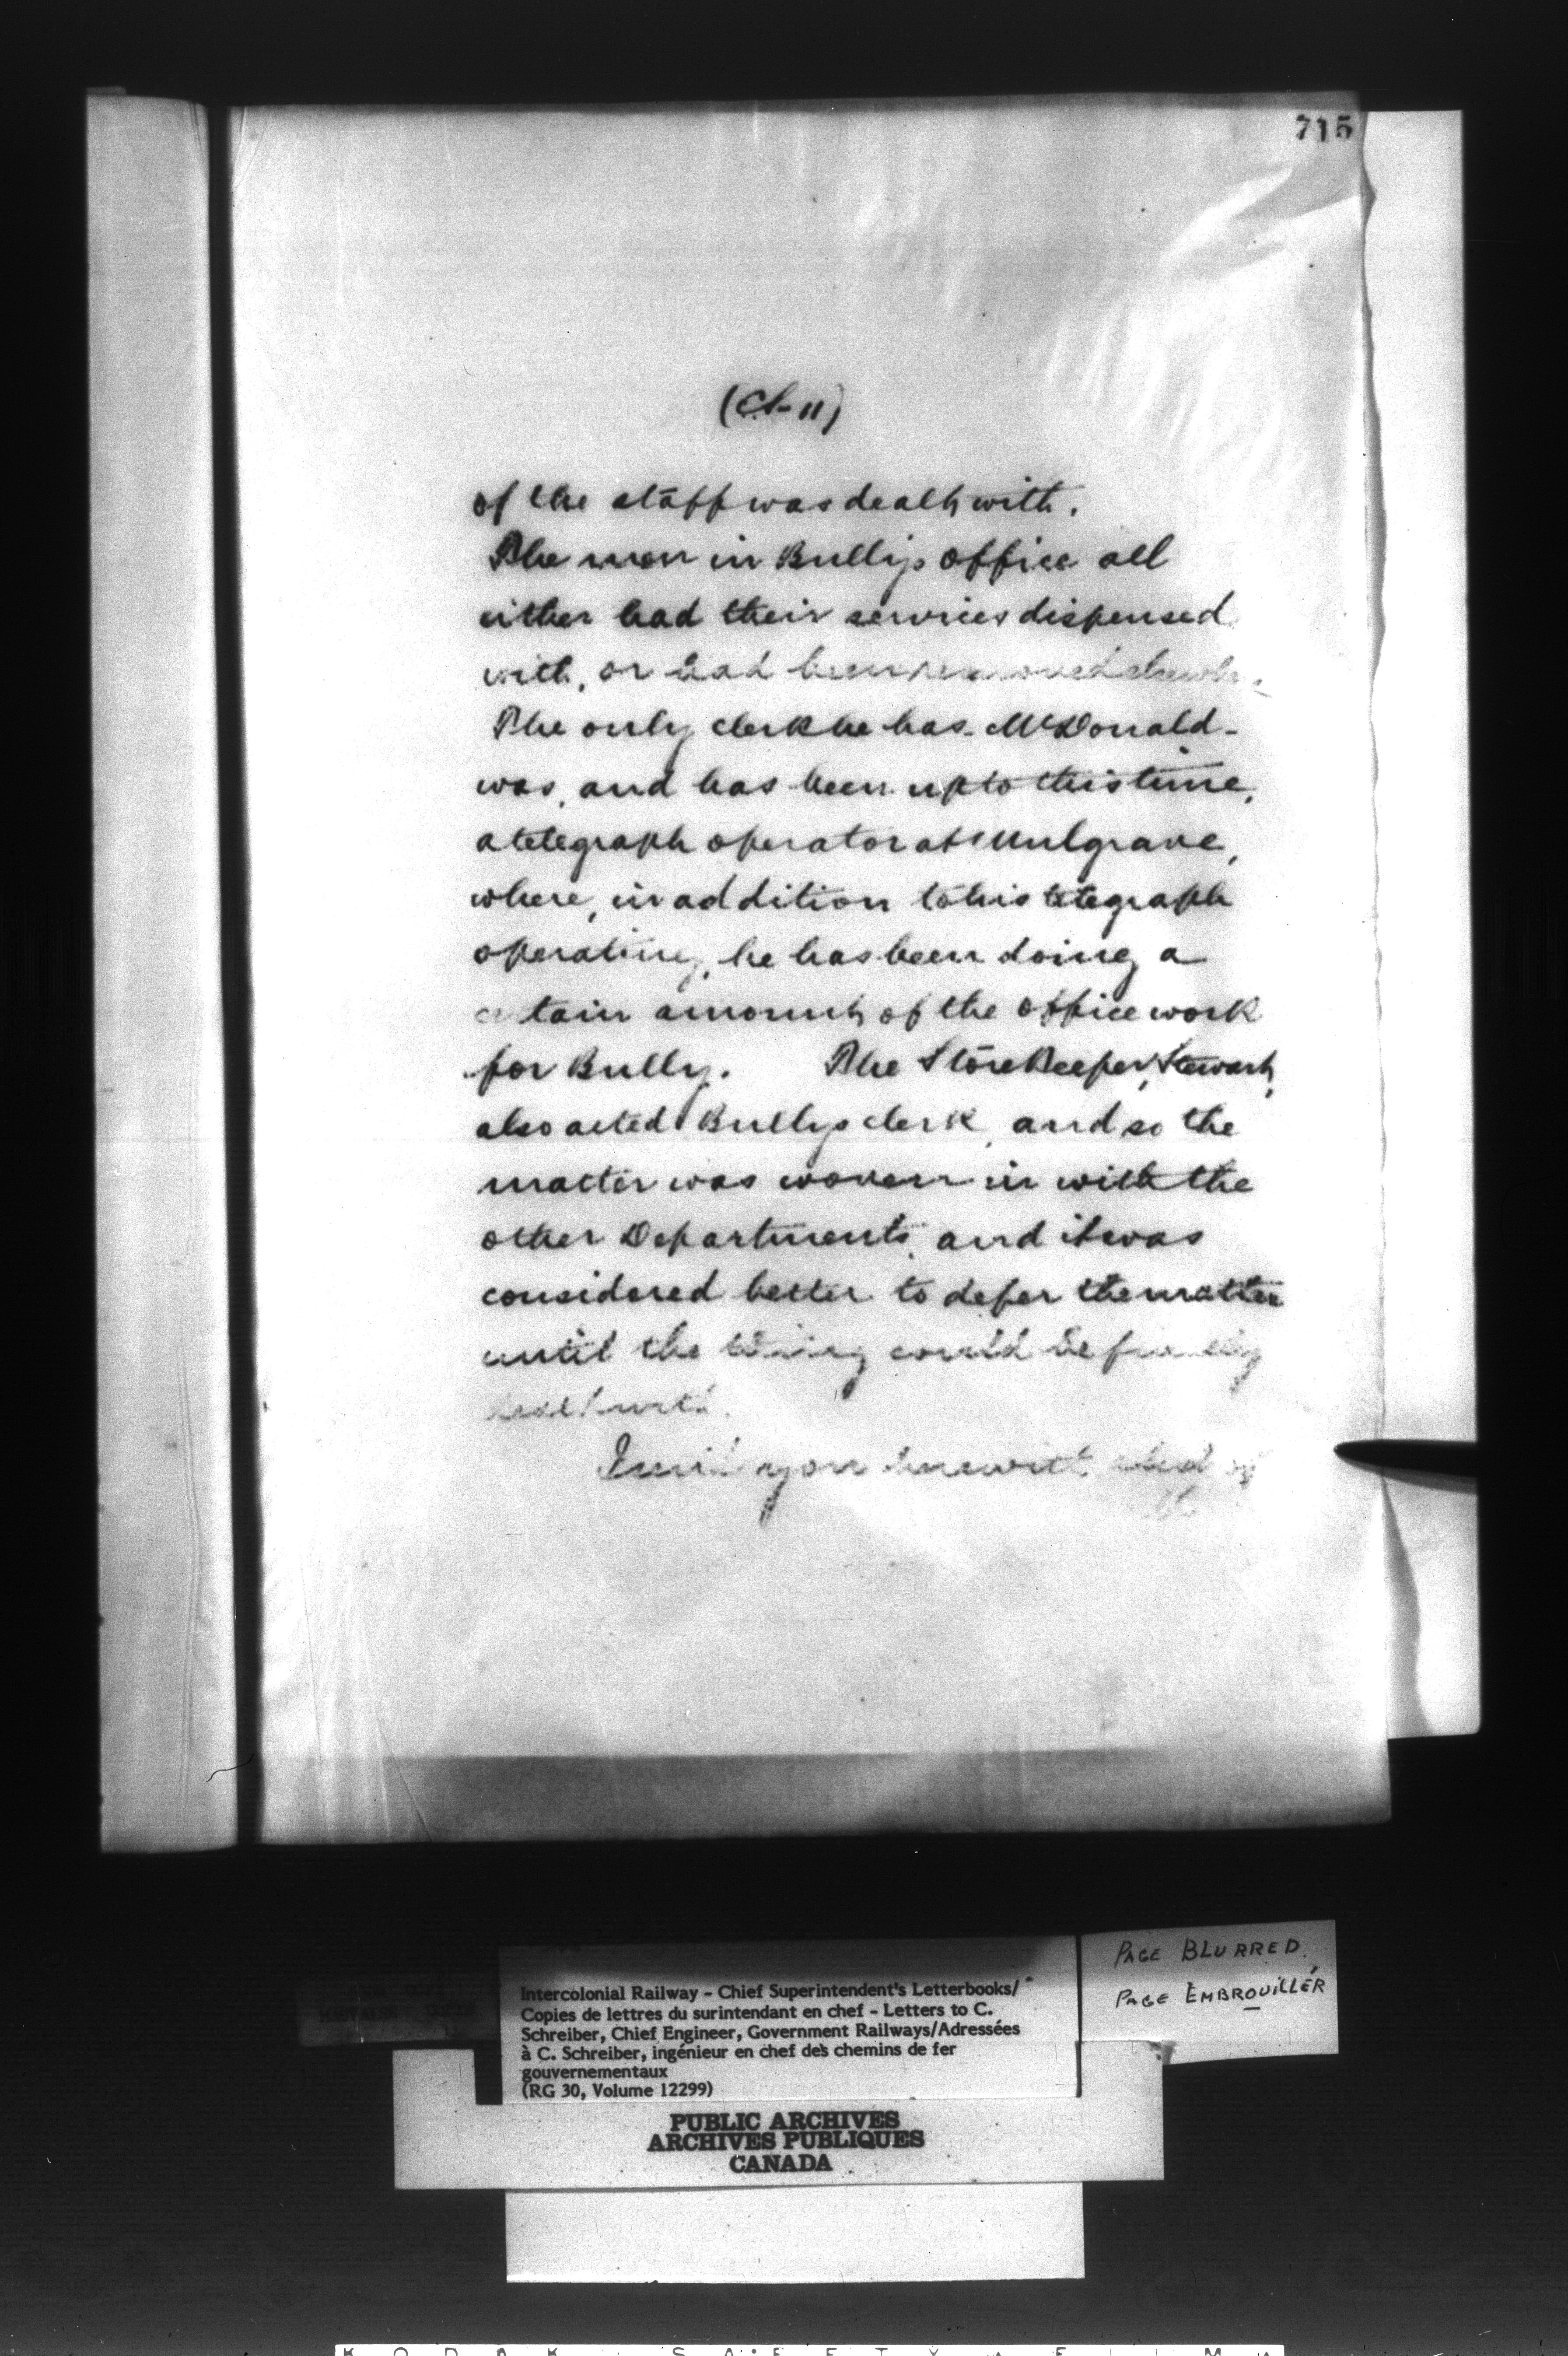 715
(Cl-11)
of the staff was dealt with.
The men in Bully's office all
either had their services dispensed
with, or had been removed
The only clerk he has - McDonald -
was, and has been up to this time,
a telegraph operator at Mulgrave,
where, in addition to his telegraph
operating, he has been doing a
certain amount of the office work
for Bully. The StoreKeeper, Stewart,
also acted Bully's clerk, and so the
matter was woven in with the
other Departments, and it was
considered better to defer the matter
until the thing could be finally
dealt with.
I send you herewith
PAGE BLURRED.
PAGE EMBROUILLÉR
Intercolonial Railway - Chief Superintendent's Letterbooks/
Copies de lettres du surintendant en chef - Letters to C.
Schreiber, Chief Engineer, Government Railways/Adressées
à C. Schreiber, ingénieur en chef des chemins de fer
gouvernementaux
(RG 30, Volume 12299)
PUBLIC ARCHIVES
ARCHIVES PUBLIQUES
CANADA